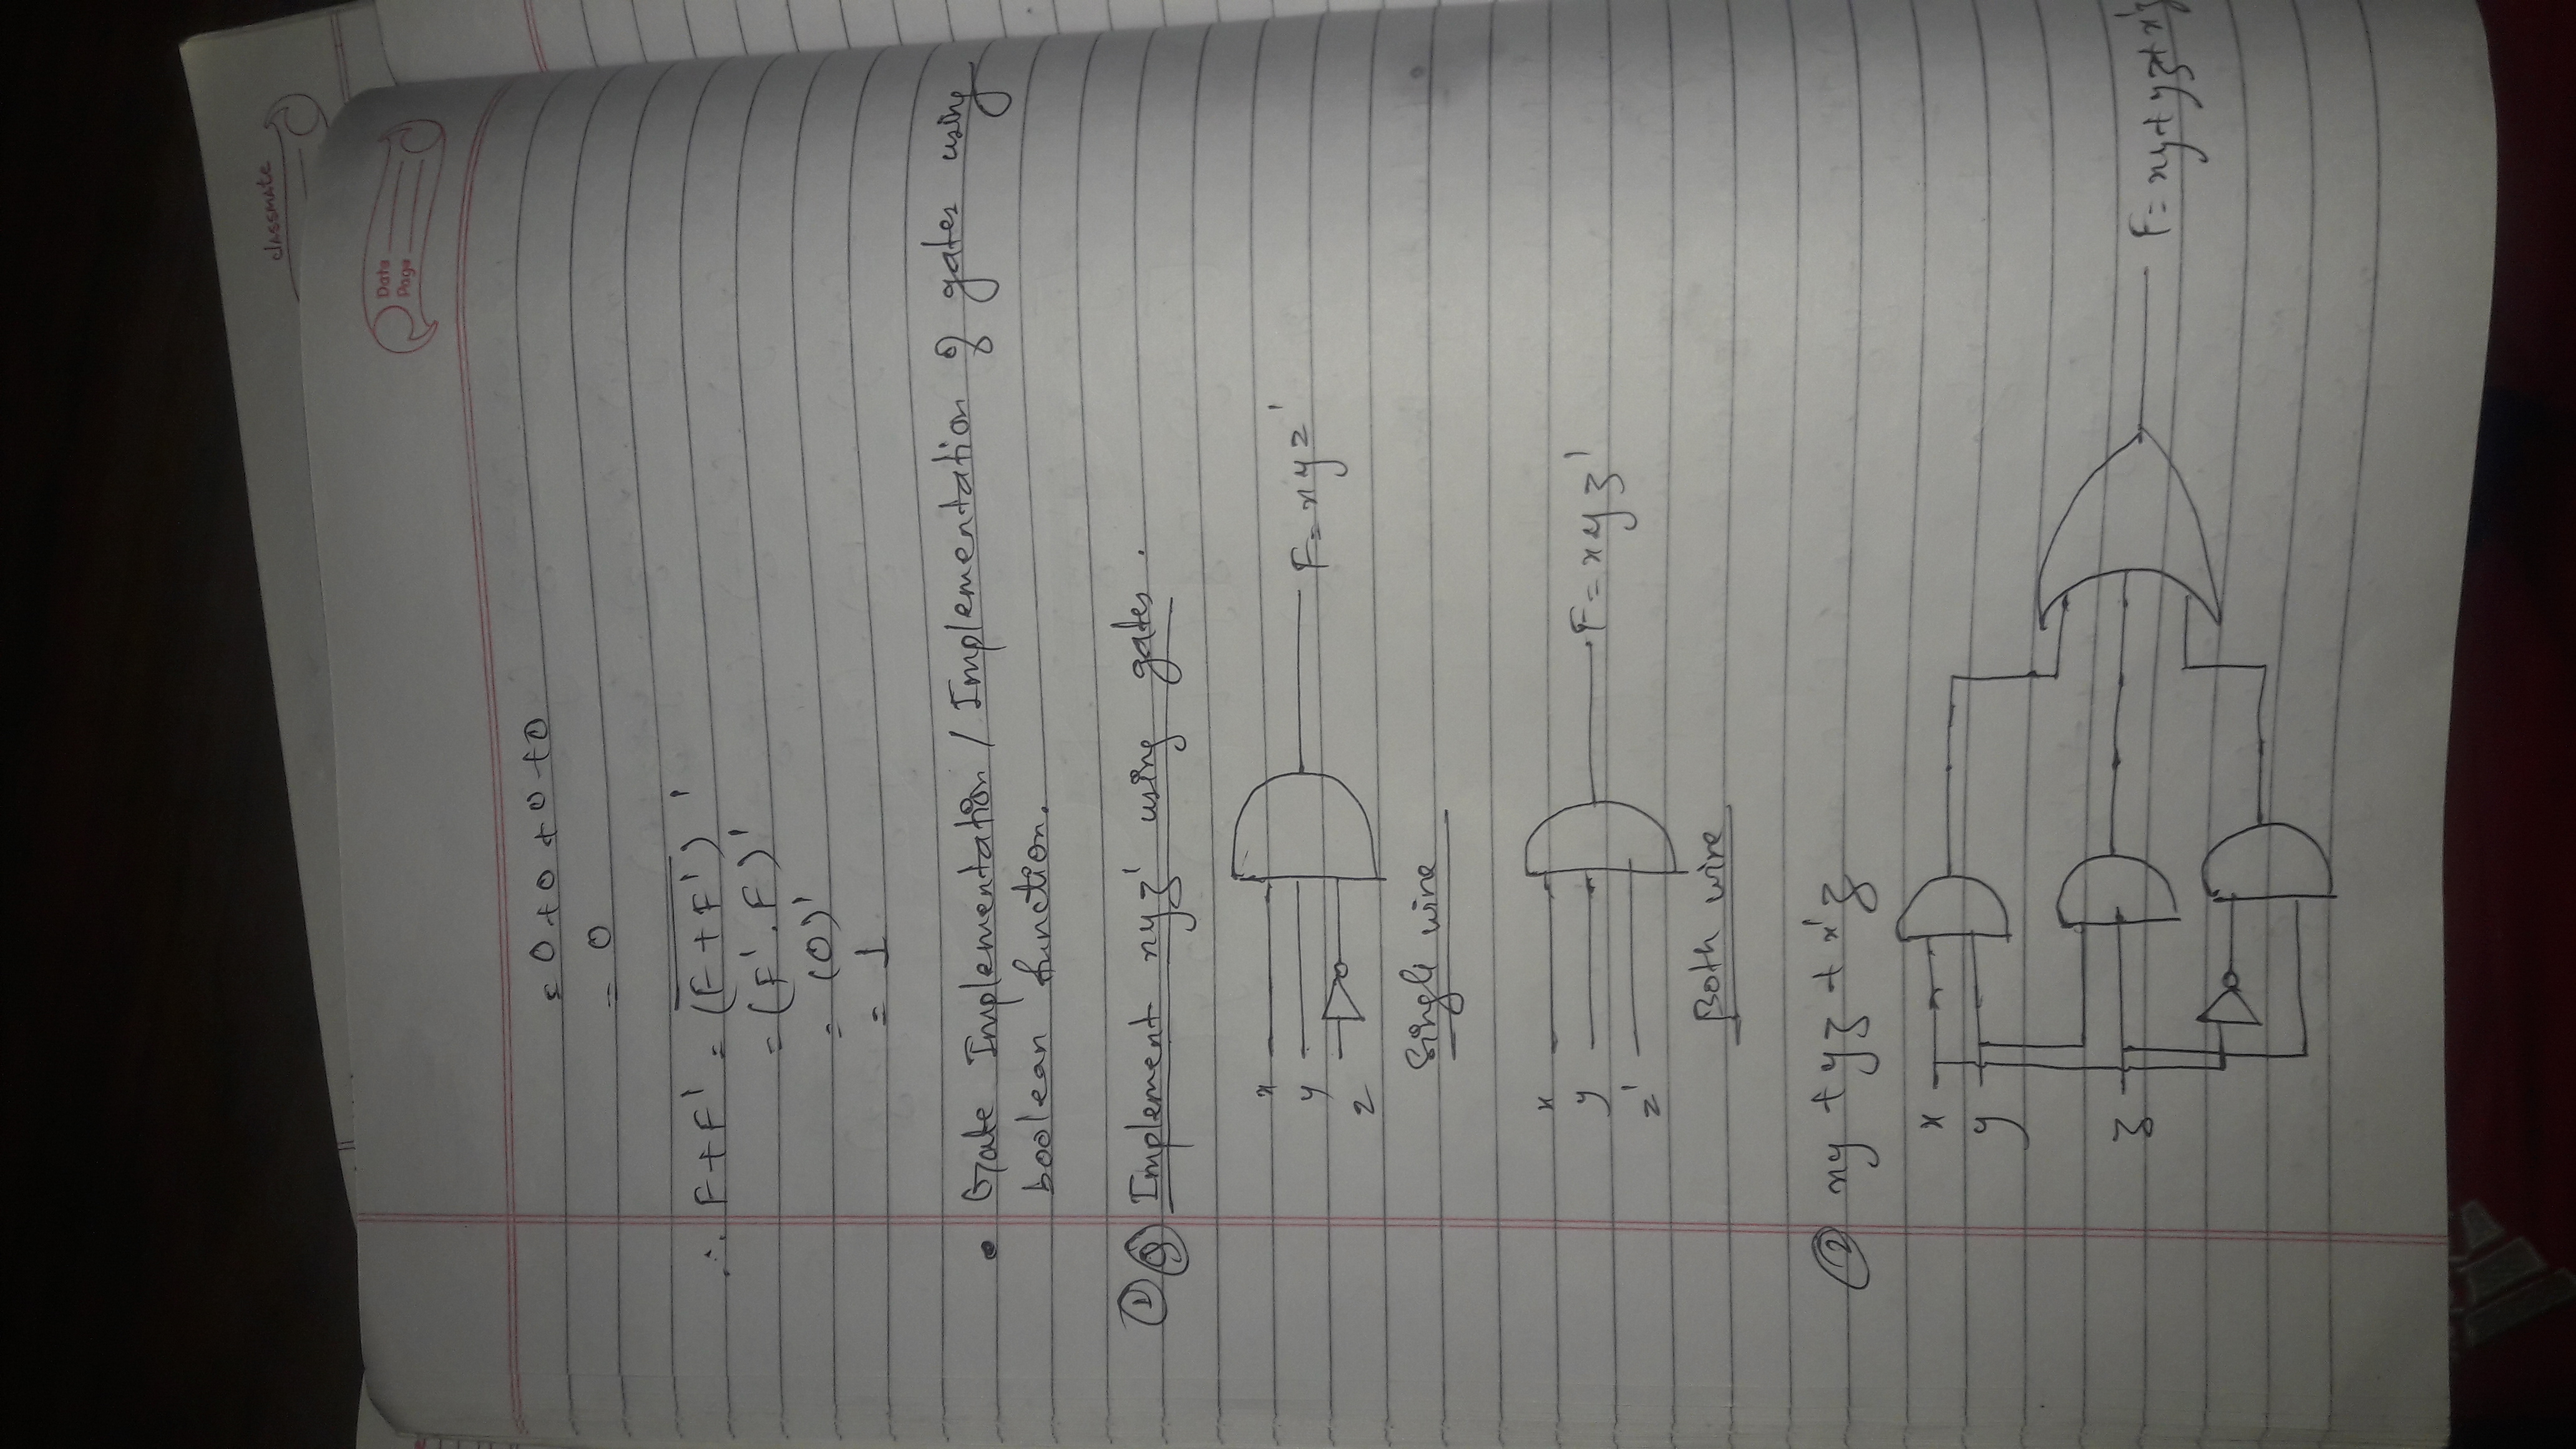 classmate
Date
Page
= 0 + 0 + 0 + 0
= 0
∴ F + F' = (F + F')'
= (F' . F)'
= (0)'
= 1
• Gate Implementation / Implementation of gates using
boolean function.
① Q Implement xyz' using gates.
x
y
z
F = xyz'
Single wire
x
y
z'
F = xyz'
Both wire
② xy + yz + x'z
x
y
z
F = xy + yz + x'z